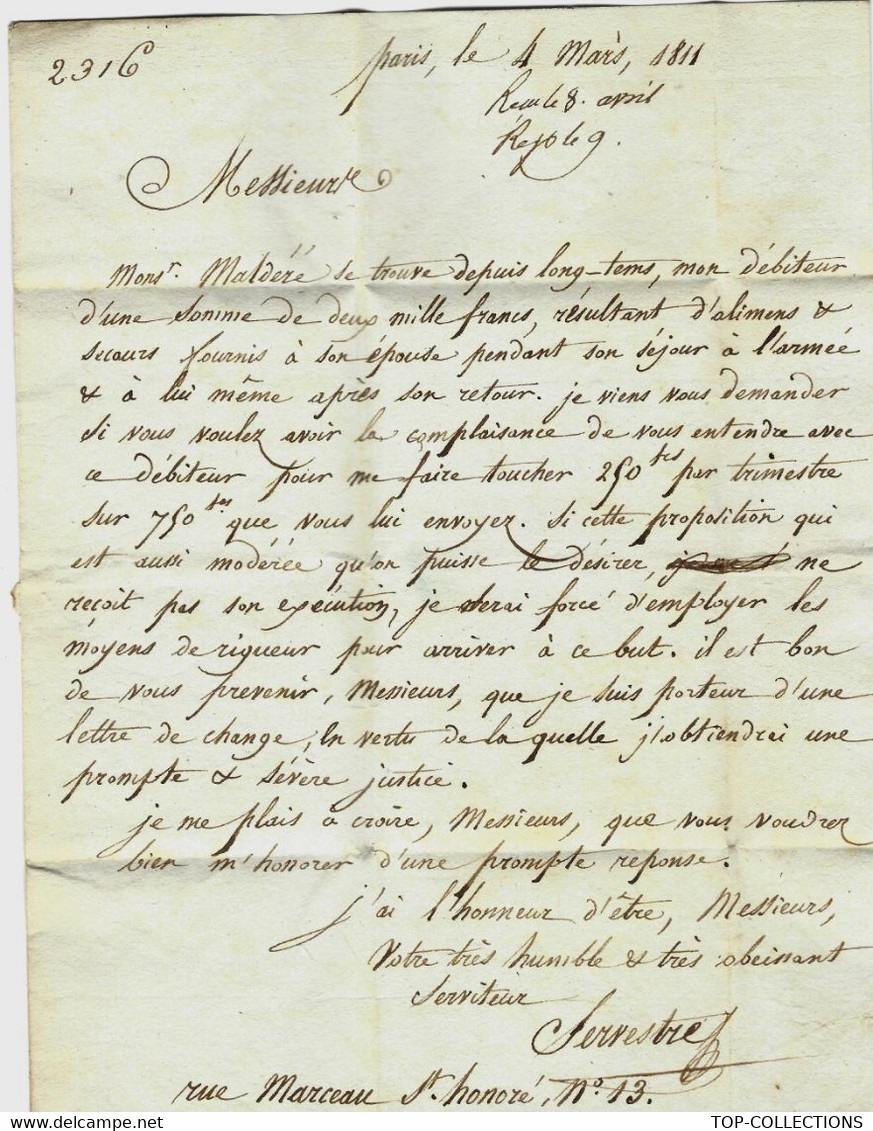 2316
paris, le 4 Mars, 1811
Reçu le 8. avril
Rép le 9.
Messieurs
Monsr. Maldéré se trouve depuis long-tems, mon débiteur
d'une somme de deux mille francs, résultant d'alimens &
secours fournis à son épouse pendant son séjour à l'armeé
& à lui même après son retour. je viens vous demander
si vous voulez avoir la complaisance de vous entendre avec
ce débiteur pour me faire toucher 250 frs par trimestre
sur 750 frs que vous lui envoyez. Si cette proposition qui
est aussi modérée qu'on puisse le désirer, ne
reçoit pas son exécution, je serai forcé d'employer les
moyens de rigueur pour arriver à ce but. il est bon
de vous prevenir, Messieurs, que je suis porteur d'une
lettre de change, en vertu de la quelle j'obtiendrai une
prompte & sévère justice.
je me plais à croire, Messieurs, que vous voudrez
bien m'honorer d'une prompte reponse.
j'ai l'honneur d'être, Messieurs,
Votre très humble & très obeissant
Serviteur
Servestre
rue Marceau St. honoré, No. 13.
TOP-COLLECTIONS